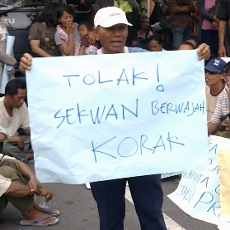 TOLAK!
SEKWAN BERWAJAH
KORAK